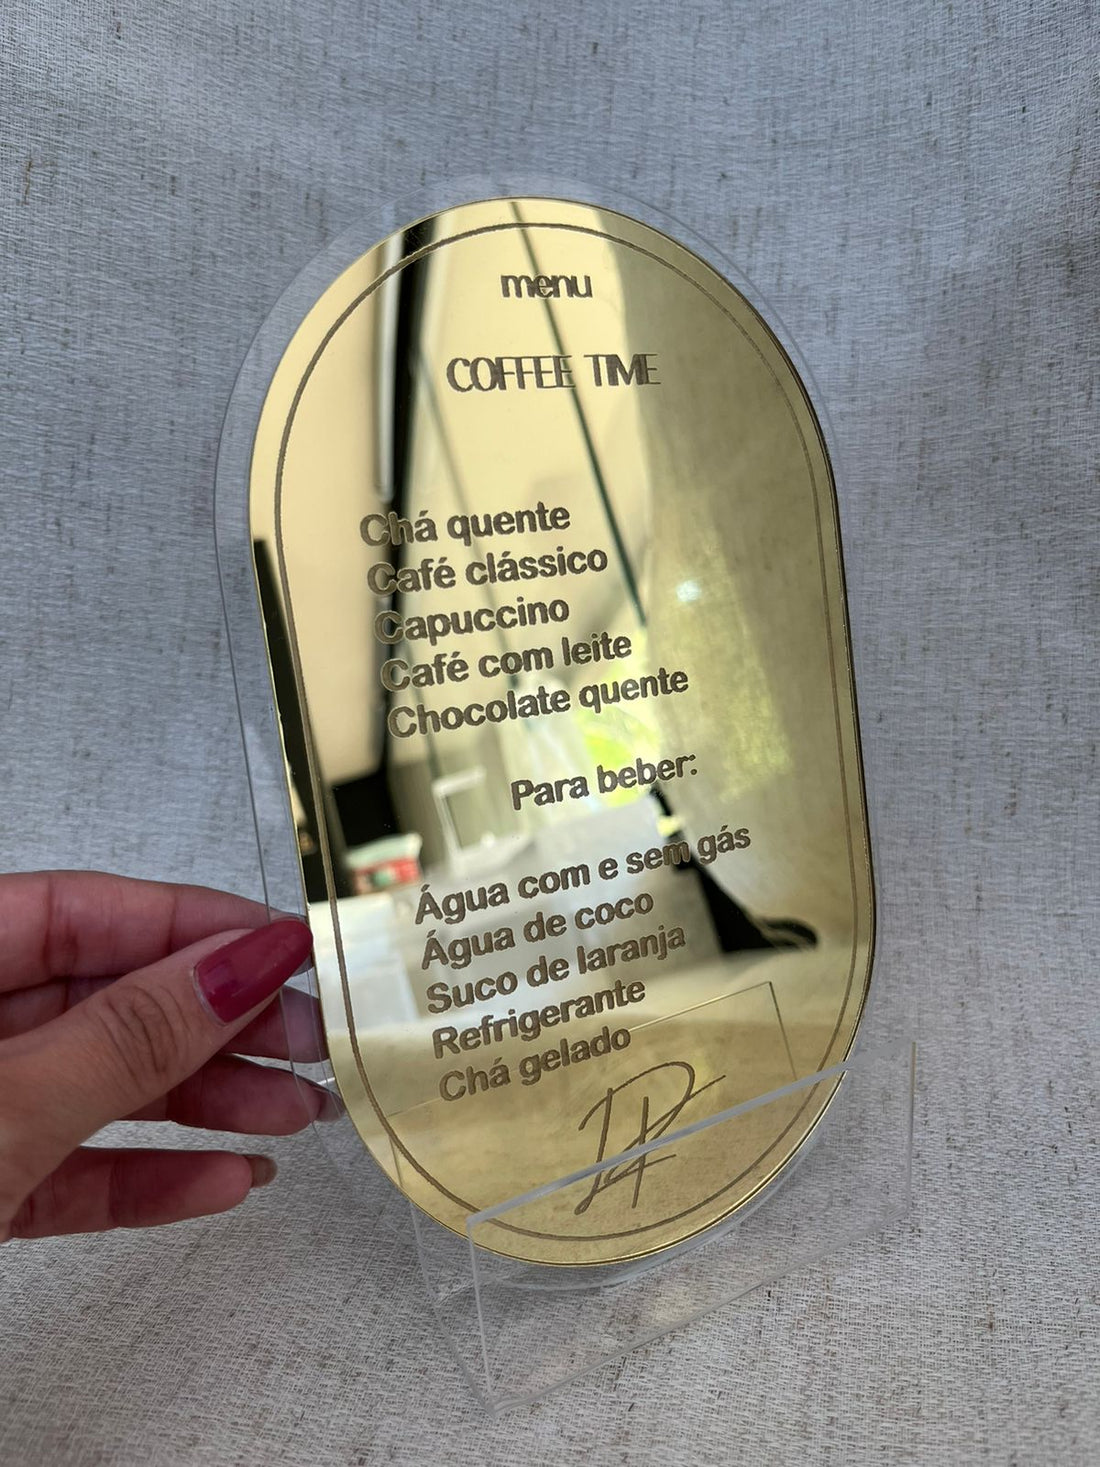 menu
COFFEE TIME
Chá quente
Café clássico
Capuccino
Café com leite
Chocolate quente
Para beber:
Água com e sem gás
Água de coco
Suco de laranja
Refrigerante
Chá gelado